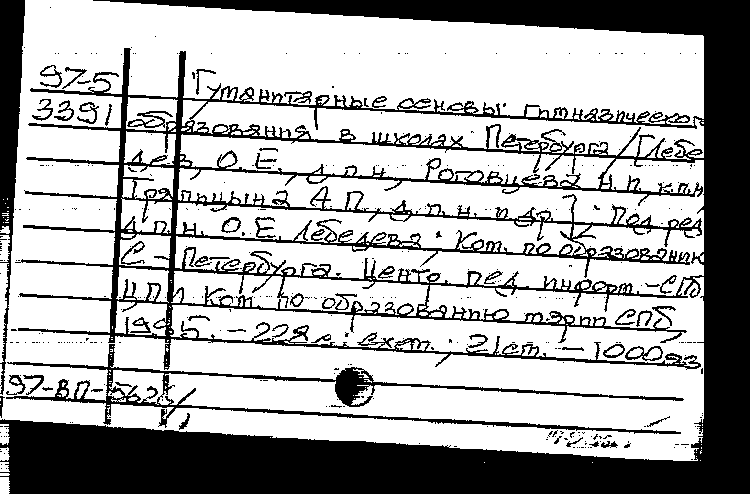 97-5 Гуманитарные основы гимназического
3391 образования в школах Петербурга / [Лебе
дев, О.Е., д.п.н., Роговцева Н.П., к.п.н
Тряпицына А.П., д.п.н. и др.]; Под ред.
д.п.н. О.Е. Лебедева; Ком. по образованию
С-Петербурга. Центр. пед. информ. - СПб.
ЦПИ Ком. по образованию мэрии СПб,
1995. - 228 с.: схем.; 21 см. - 1000 экз.
97-ВП-5626/